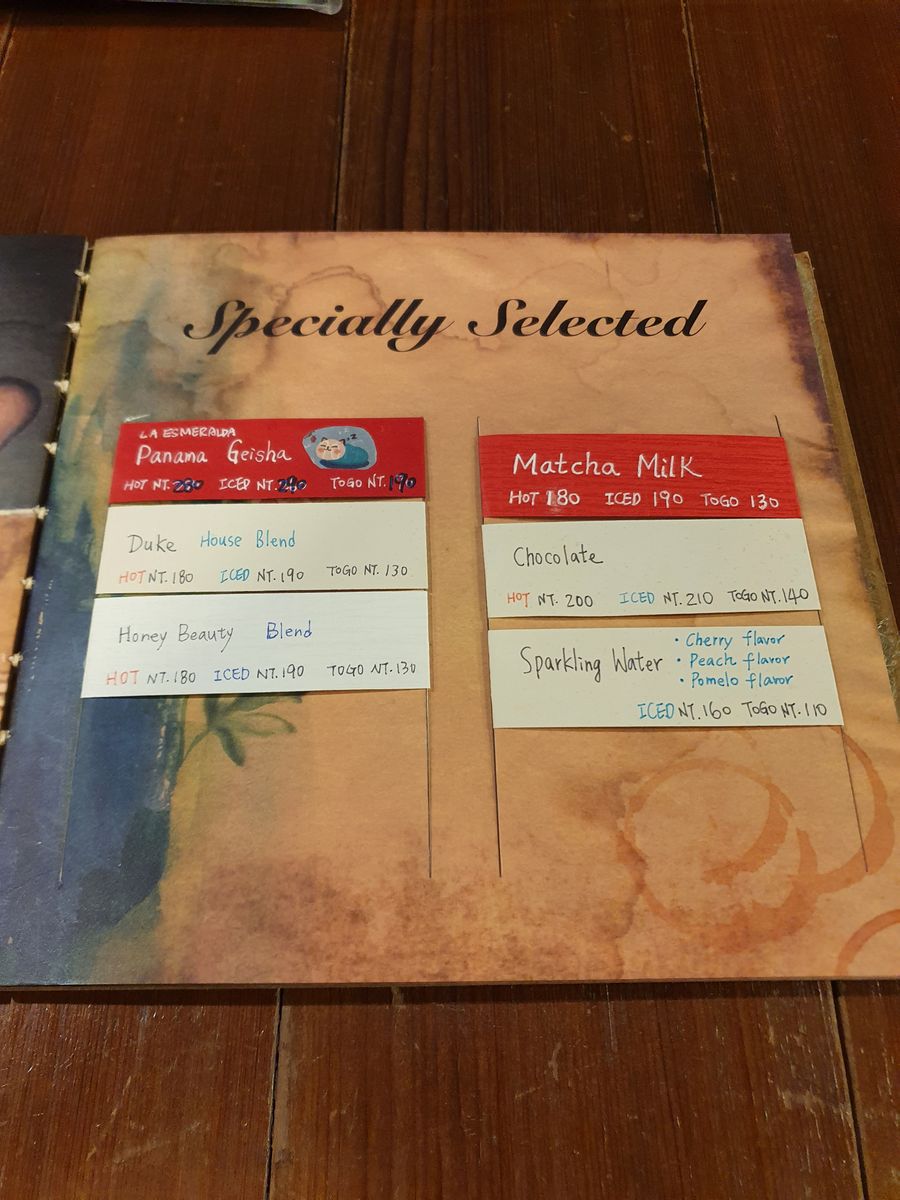 Specially Selected
LA ESMERALDA
Panama Geisha
HOT NT. 280 ICED NT. 290 TOGO NT. 190
Duke House Blend
HOT NT. 180 ICED NT. 190 TOGO NT. 130
Honey Beauty Blend
HOT NT. 180 ICED NT. 190 TOGO NT. 130
Matcha Milk
HOT 180 ICED 190 TOGO 130
Chocolate
HOT NT. 200 ICED NT. 210 TOGO NT. 140
Sparkling Water
• Cherry flavor
• Peach flavor
• Pomelo flavor
ICED NT. 160 TOGO NT. 110